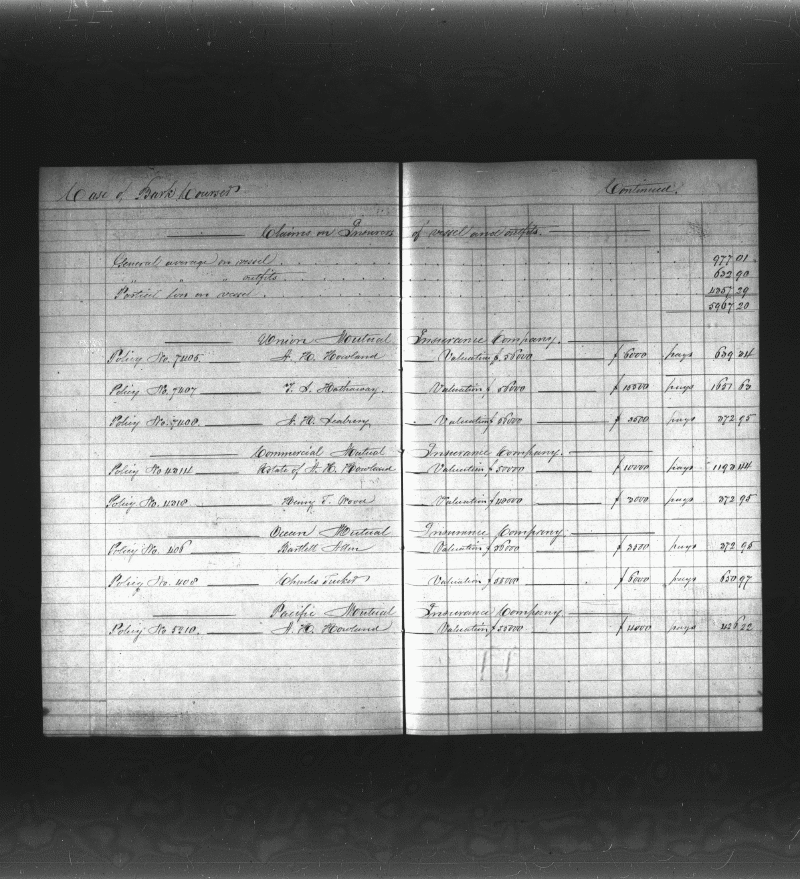 Case of Bark Courser Continued.
Claims on Insurers of vessel and outfits.
General average on vessel 977.01
" " " outfits 632.90
Partial loss on vessel 4357.29
5967.20
Union Mutual Insurance Company.
Policy No. 7405 Howland Valuation $ 56000 $ 6000 pays 639.24
Policy No. 7407 T. S. Hathaway Valuation $ 56000 $ 15500 pays 1651.63
Policy No. 7408 Seabury Valuation $ 56000 $ 3500 pays 372.95
Commercial Mutual Insurance Company.
Policy No 4314 Estate of Howland Valuation $ 50000 $ 10000 pays 1193.44
Policy No. 4318 Henry T. Wood Valuation $ pays 372.95
Ocean Mutual Insurance Company
Policy No. 406 Bartlett Allen Valuation $ 56000 $ 3500 pays 372.95
Policy No. 408 Charles Tucker Valuation $ $ 6000 pays
Pacific Mutual Insurance Company.
Policy No 5210. Howland Valuation $ $ 4000 pays